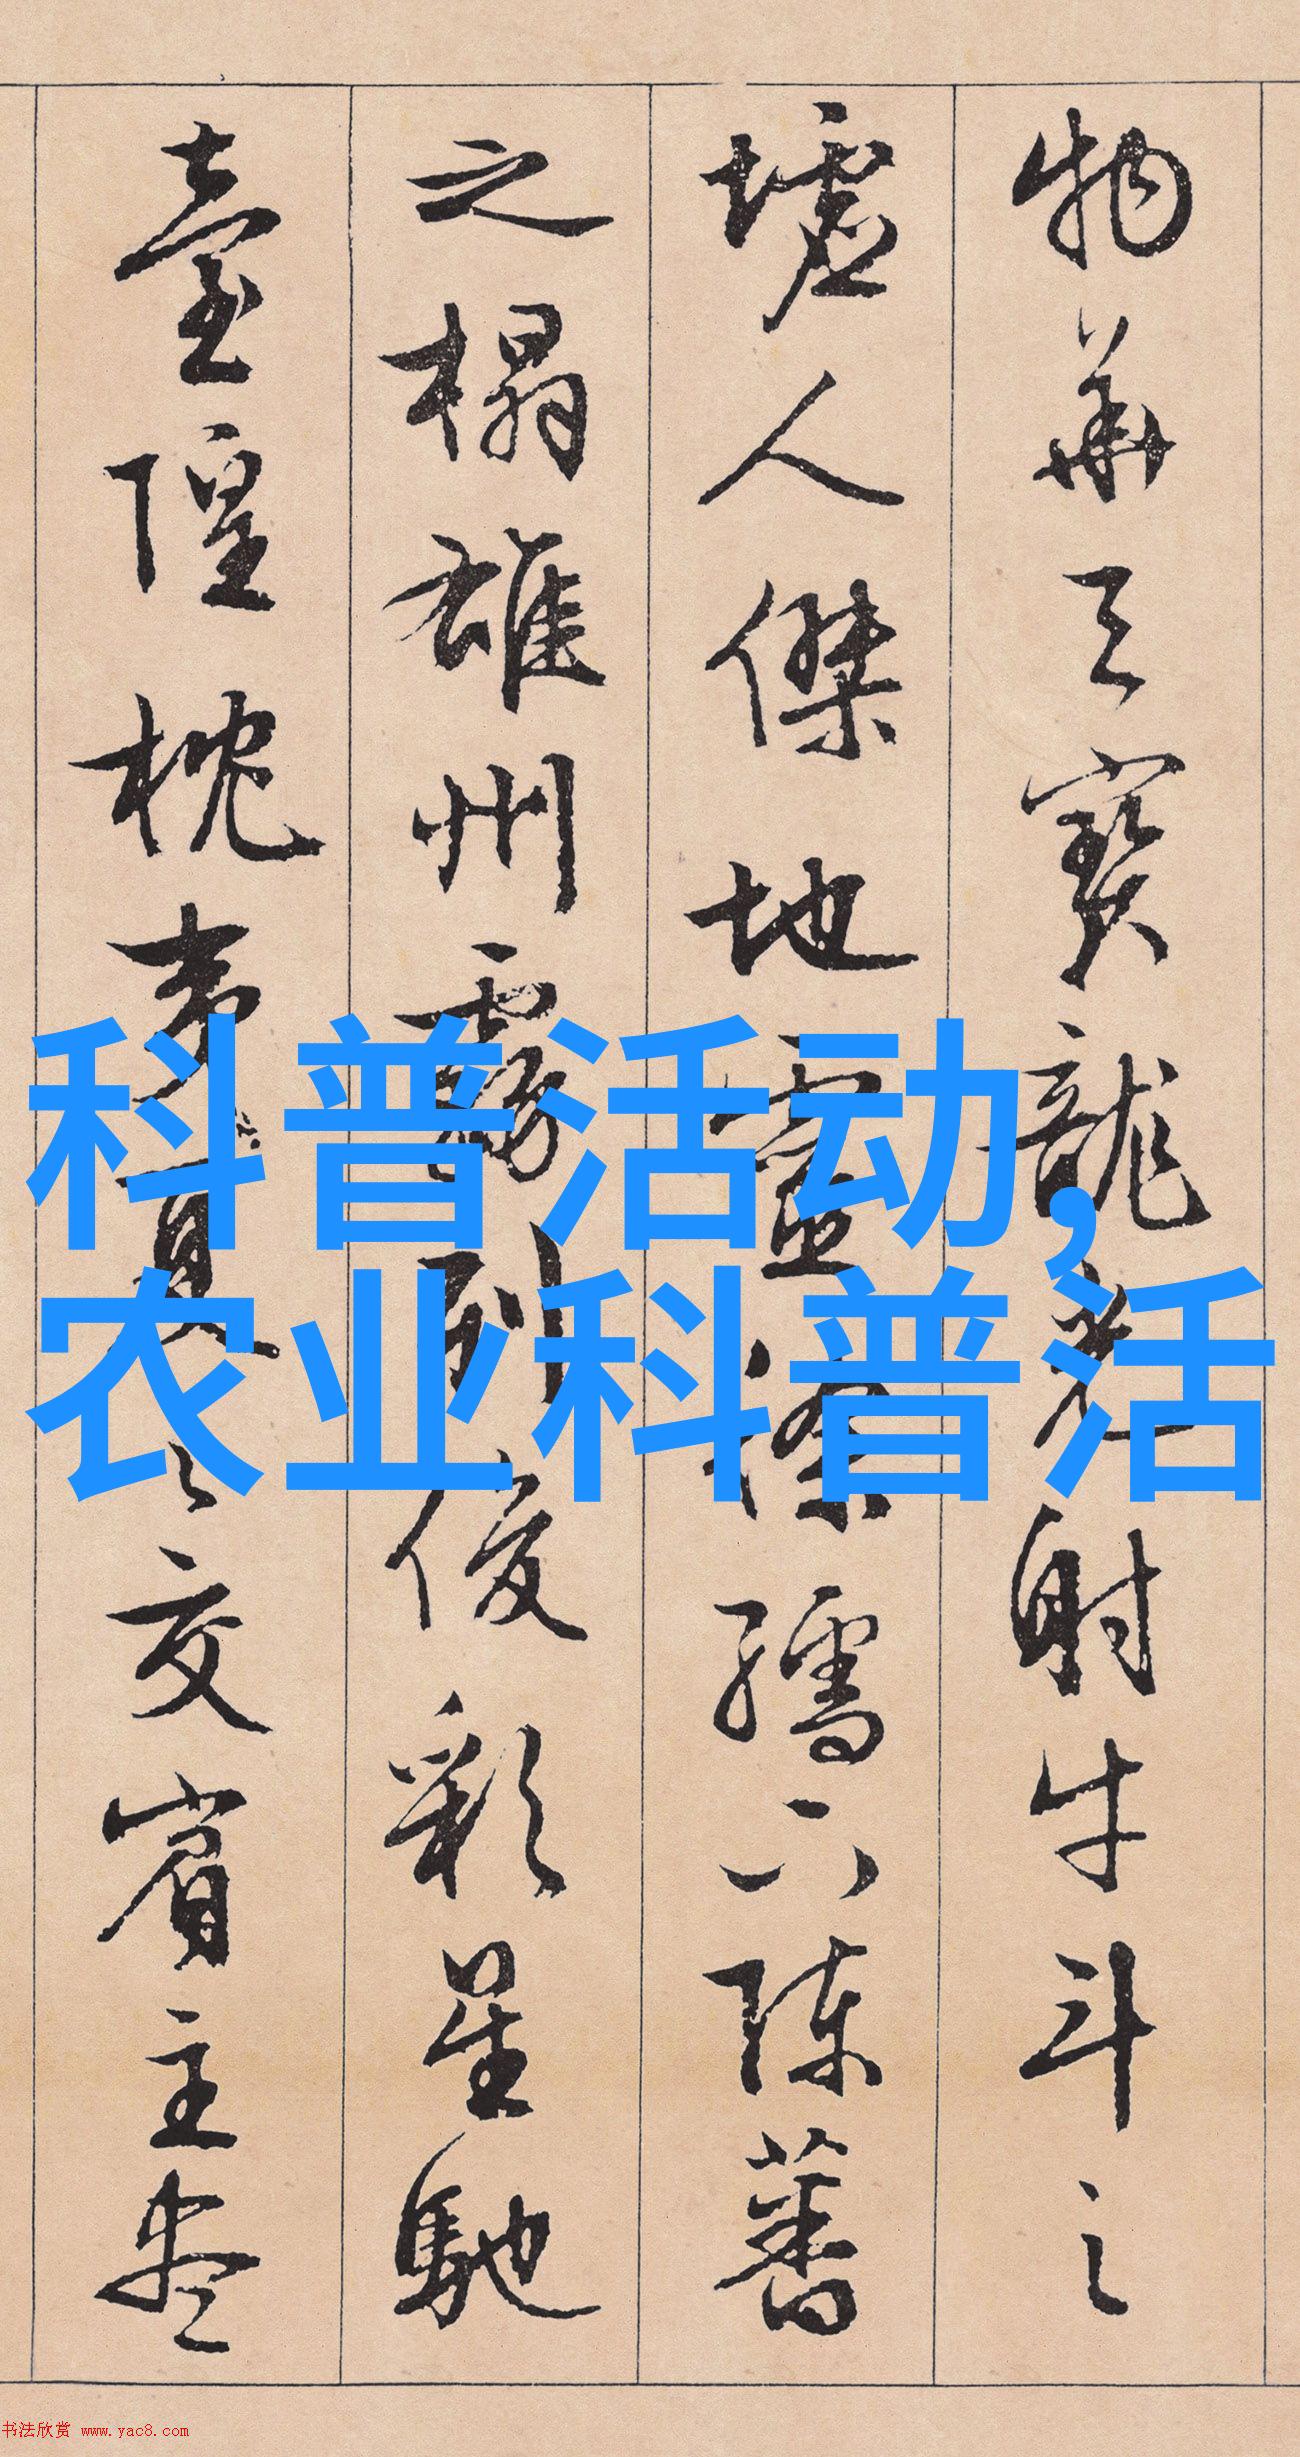 物華天寶龍光射牛斗之
墟人傑地靈徐孺下陳蕃
之榻雄州霧列俊彩星馳
臺隍枕夷夏之交賓主盡
科普活动,
农业科普活
书法欣赏 www.yac8.com